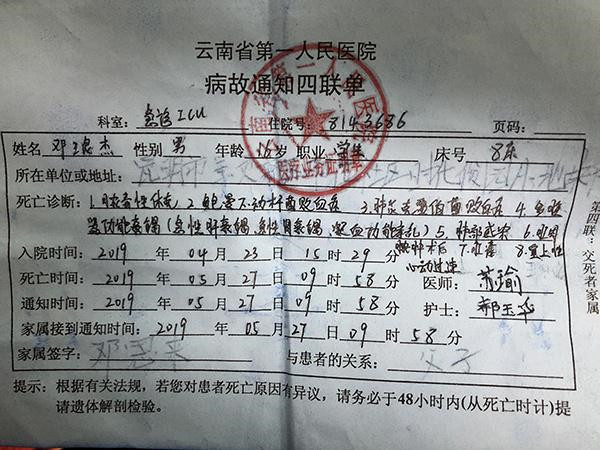 云南省第一人民医院
病故通知四联单
科室: 急诊ICU 住院号: 8143686 页码:
姓名 邓 杰 性别 男 年龄 岁 职业 学生 床号 8床
所在单位或地址:
死亡诊断: 1. 性休克 2. 鲍曼不动杆菌败血症 3. 肺炎克雷伯菌败血症 4. 多脏
器功能衰竭(急性肝衰竭、急性肾衰竭、凝血功能紊乱) 5.
术后 7. 8. 室上性
心动过速
入院时间: 2019 年 04 月 23 日 15 时 29 分
死亡时间: 2019 年 05 月 27 日 09 时 58 分 医师:
通知时间: 2019 年 05 月 27 日 09 时 58 分 护士:
家属接到通知时间: 2019 年 05 月 27 日 09 时 58 分
家属签字: 与患者的关系: 父子
第四联:交死者家属
提示: 根据有关法规,若您对患者死亡原因有异议,请务必于48小时内(从死亡时计)提
请遗体解剖检验。